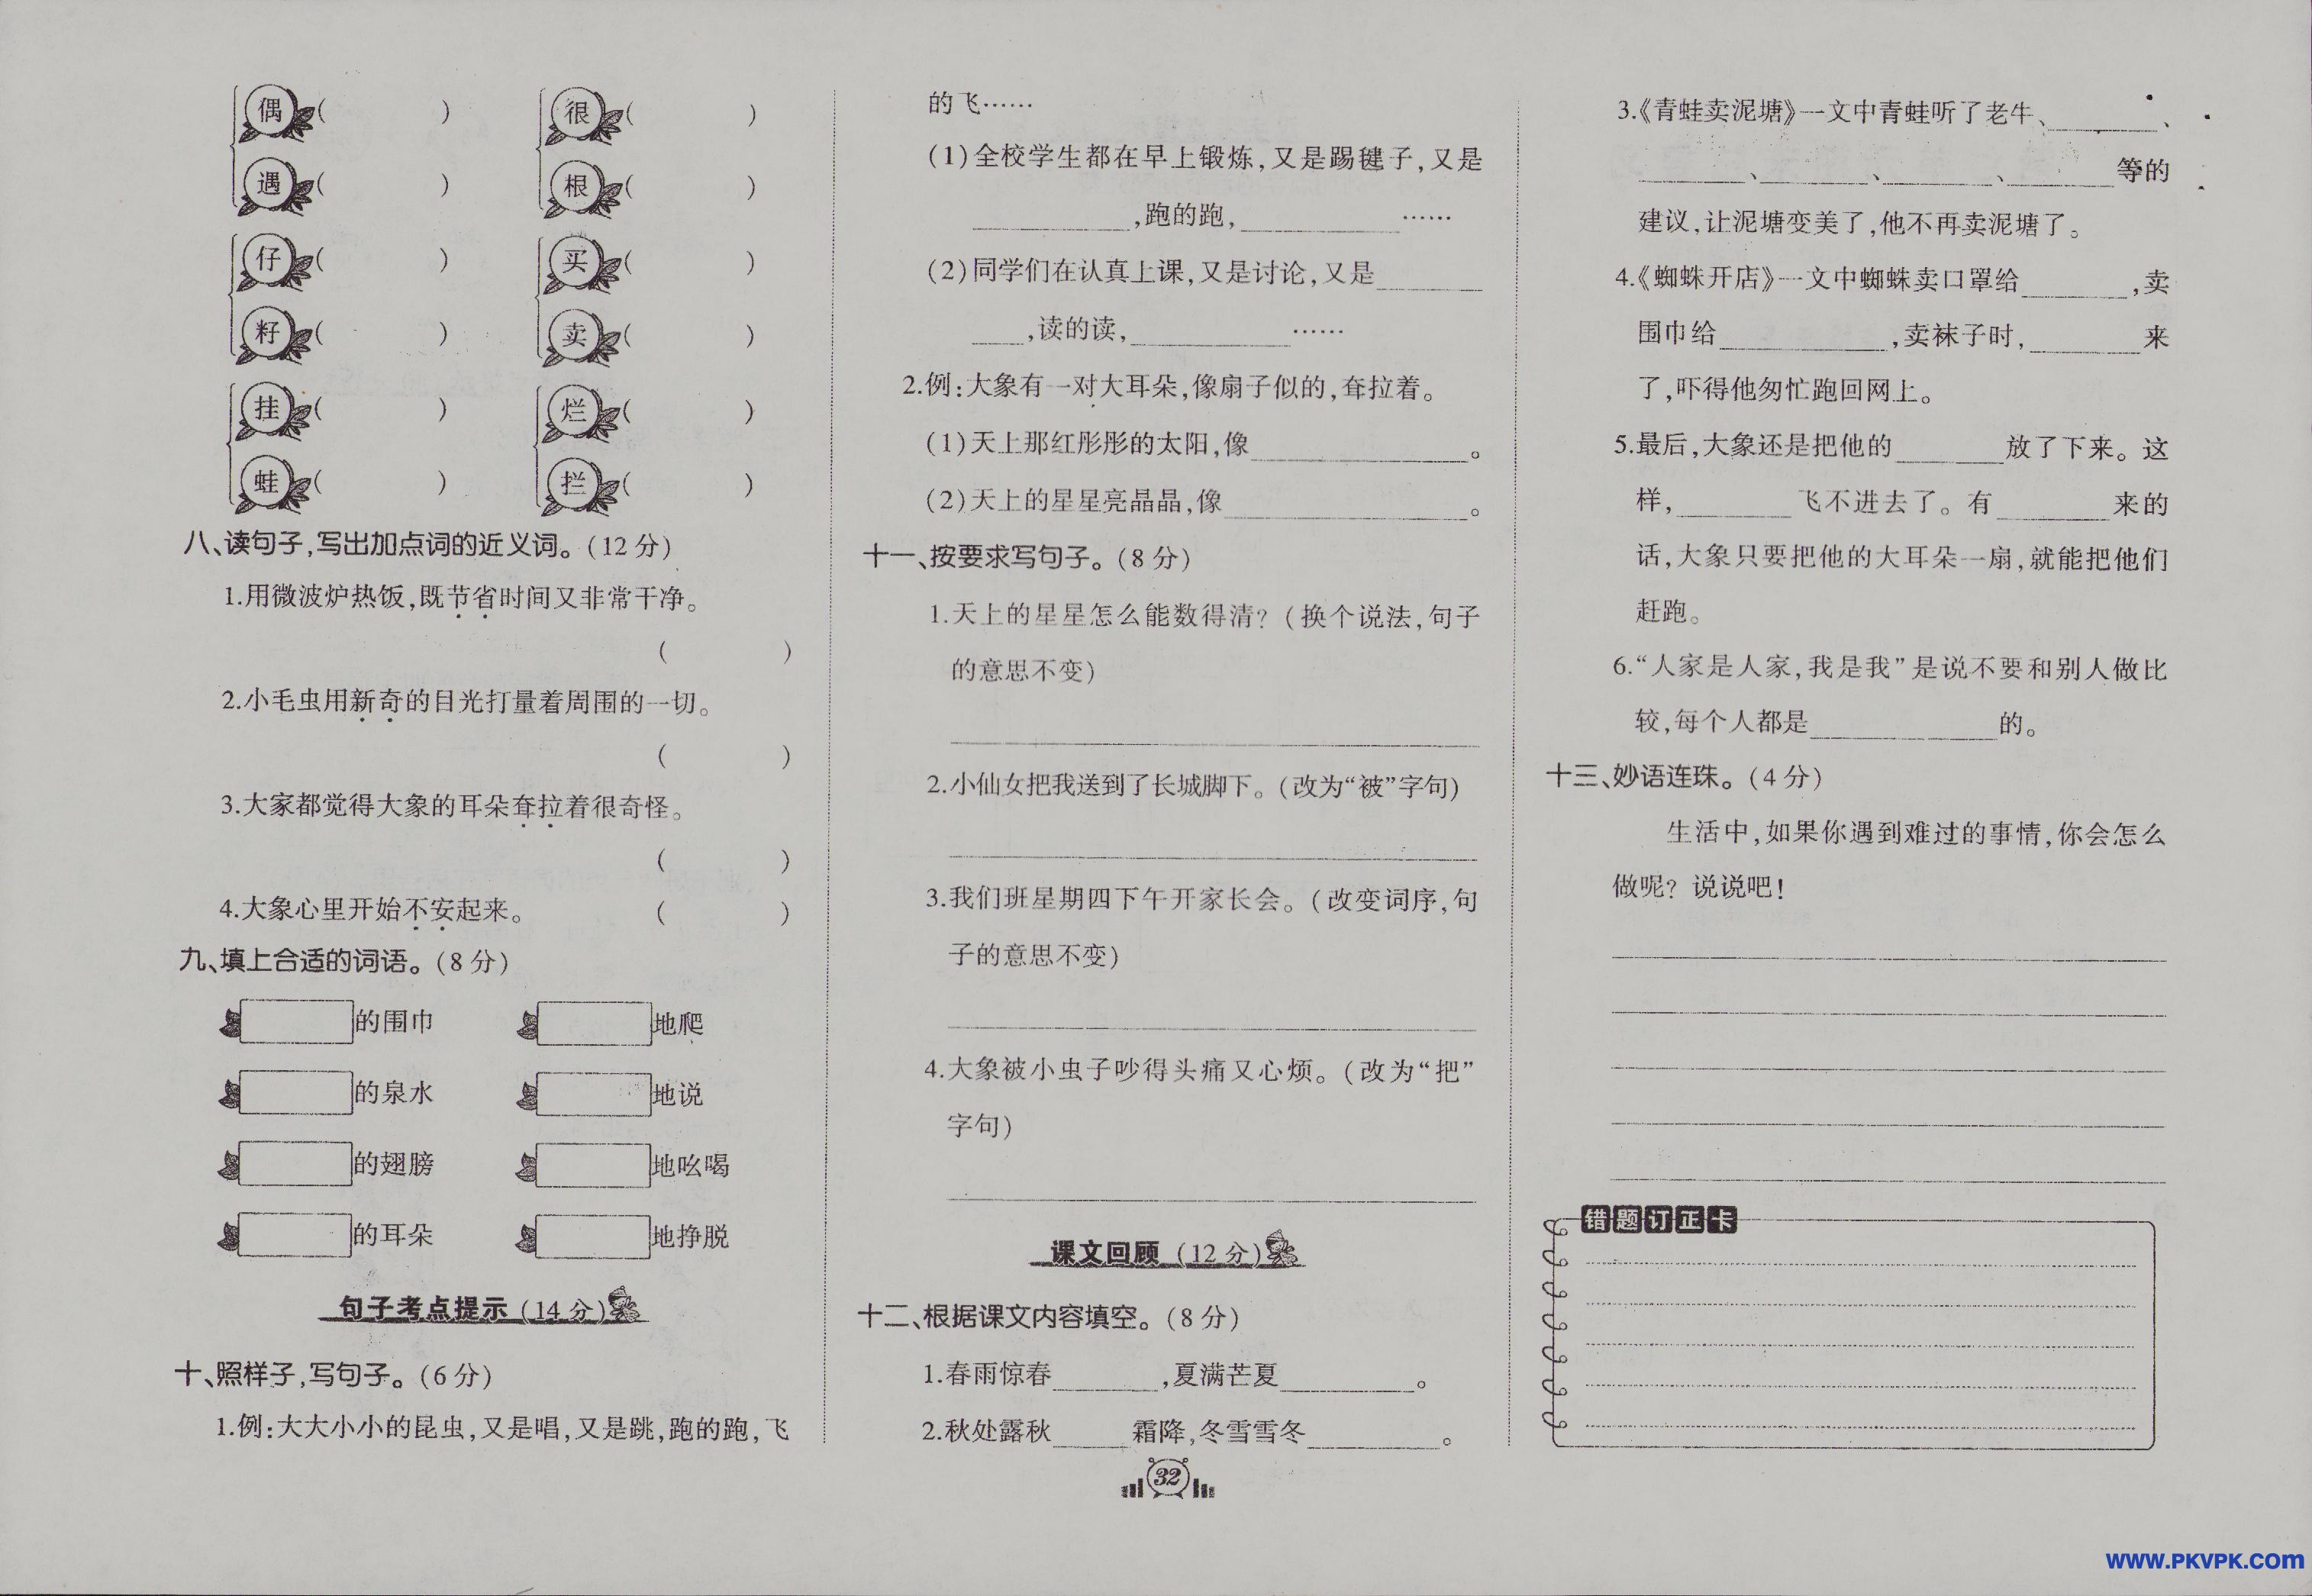 偶（　　）　很（　　）
遇（　　）　根（　　）
仔（　　）　买（　　）
籽（　　）　卖（　　）
挂（　　）　烂（　　）
蛙（　　）　拦（　　）
八、读句子,写出加点词的近义词。(12 分)
1.用微波炉热饭,既节省时间又非常干净。
（　　）
2.小毛虫用新奇的目光打量着周围的一切。
（　　）
3.大家都觉得大象的耳朵耷拉着很奇怪。
（　　）
4.大象心里开始不安起来。（　　）
九、填上合适的词语。(8 分)
的围巾　地爬
的泉水　地说
的翅膀　地吆喝
的耳朵　地挣脱
句子考点提示(14 分)
十、照样子,写句子。(6 分)
1.例:大大小小的昆虫,又是唱,又是跳,跑的跑,飞
的飞……
(1)全校学生都在早上锻炼,又是踢毽子,又是
______,跑的跑,______……
(2)同学们在认真上课,又是讨论,又是____
__,读的读,______……
2.例:大象有一对大耳朵,像扇子似的,耷拉着。
(1)天上那红彤彤的太阳,像________。
(2)天上的星星亮晶晶,像________。
十一、按要求写句子。(8 分)
1.天上的星星怎么能数得清?(换个说法,句子
的意思不变)
2.小仙女把我送到了长城脚下。(改为“被”字句)
3.我们班星期四下午开家长会。(改变词序,句
子的意思不变)
4.大象被小虫子吵得头痛又心烦。(改为“把”
字句)
课文回顾(12 分)
十二、根据课文内容填空。(8 分)
1.春雨惊春____,夏满芒夏____。
2.秋处露秋____霜降,冬雪雪冬____。
32
3.《青蛙卖泥塘》一文中青蛙听了老牛、____、
____、____、____、____等的
建议,让泥塘变美了,他不再卖泥塘了。
4.《蜘蛛开店》一文中蜘蛛卖口罩给____,卖
围巾给______,卖袜子时,____来
了,吓得他匆忙跑回网上。
5.最后,大象还是把他的____放了下来。这
样,____飞不进去了。有____来的
话,大象只要把他的大耳朵一扇,就能把他们
赶跑。
6.“人家是人家,我是我”是说不要和别人做比
较,每个人都是______的。
十三、妙语连珠。(4 分)
生活中,如果你遇到难过的事情,你会怎么
做呢? 说说吧!
错题订正卡
www.PKVPK.com